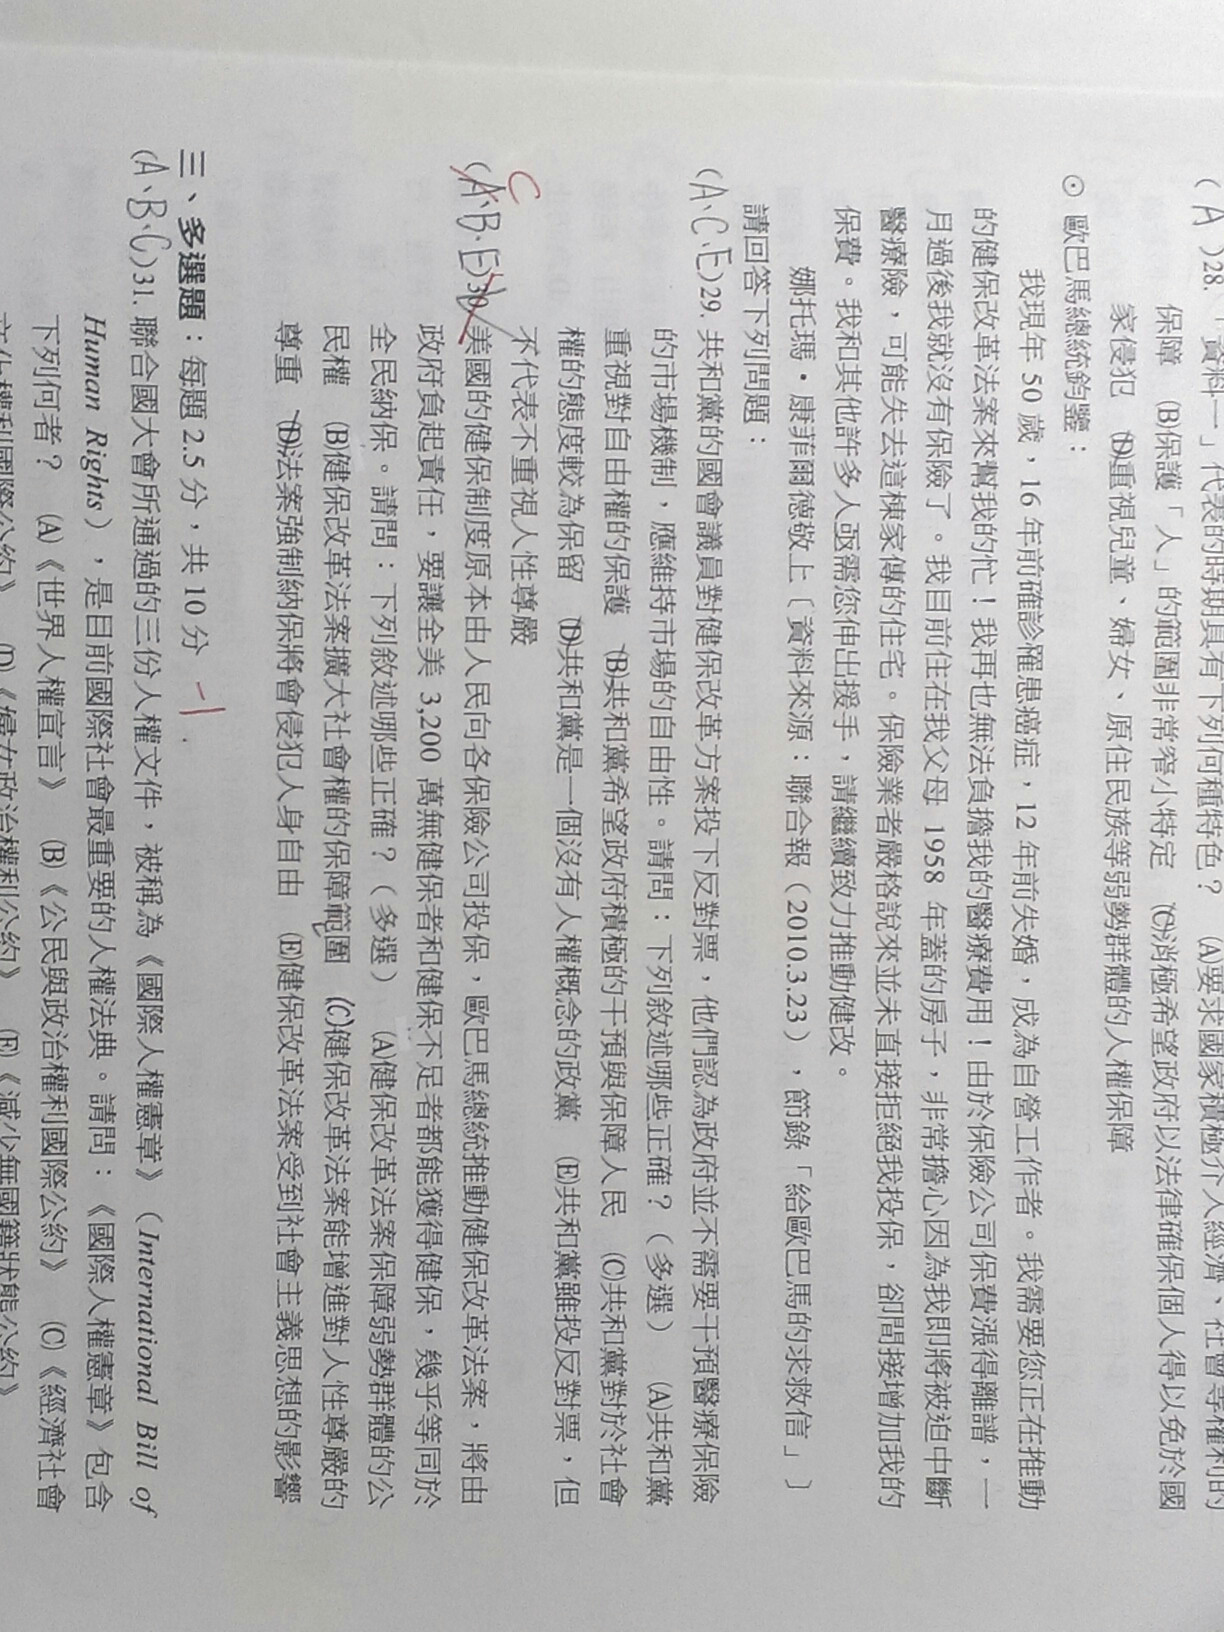 ( A )28.「資料一」代表的時期具有下列何種特色? (A)要求國家積極介入經濟、社會等權利的
保障 (B)保護「人」的範圍非常窄小特定 (C)消極希望政府以法律確保個人得以免於國
家侵犯 (D)重視兒童、婦女、原住民族等弱勢群體的人權保障
⊙ 歐巴馬總統鈞鑒:
我現年 50 歲,16 年前確診罹患癌症,12 年前失婚,成為自營工作者。我需要您正在推動
的健保改革法案來幫我的忙!我再也無法負擔我的醫療費用!由於保險公司保費漲得離譜,一
月過後我就沒有保險了。我目前住在我父母 1958 年蓋的房子,非常擔心因為我即將被迫中斷
醫療險,可能失去這棟家傳的住宅。保險業者嚴格說來並未直接拒絕我投保,卻間接增加我的
保費。我和其他許多人亟需您伸出援手,請繼續致力推動健改。
娜托瑪・康菲爾德敬上〔資料來源:聯合報(2010.3.23),節錄「給歐巴馬的求救信」〕
請回答下列問題:
(A、C、E)29. 共和黨的國會議員對健保改革方案投下反對票,他們認為政府並不需要干預醫療保險
的市場機制,應維持市場的自由性。請問:下列敘述哪些正確?(多選) (A)共和黨
重視對自由權的保護 (B)共和黨希望政府積極的干預與保障人民 (C)共和黨對於社會
權的態度較為保留 (D)共和黨是一個沒有人權概念的政黨 (E)共和黨雖投反對票,但
不代表不重視人性尊嚴
C
(A、B、E)30. 美國的健保制度原本由人民向各保險公司投保,歐巴馬總統推動健保改革法案,將由
政府負起責任,要讓全美 3,200 萬無健保者和健保不足者都能獲得健保,幾乎等同於
全民納保。請問:下列敘述哪些正確?(多選) (A)健保改革法案保障弱勢群體的公
民權 (B)健保改革法案擴大社會權的保障範圍 (C)健保改革法案能增進對人性尊嚴的
尊重 (D)法案強制納保將會侵犯人身自由 (E)健保改革法案受到社會主義思想的影響
三、多選題:每題 2.5 分,共 10 分 -1
(A、B、C)31. 聯合國大會所通過的三份人權文件,被稱為《國際人權憲章》(International Bill of
Human Rights),是目前國際社會最重要的人權法典。請問:《國際人權憲章》包含
下列何者? (A)《世界人權宣言》 (B)《公民與政治權利國際公約》 (C)《經濟社會
文化權利國際公約》 (D)《婦女政治權利公約》 (E)《減少無國籍狀態公約》